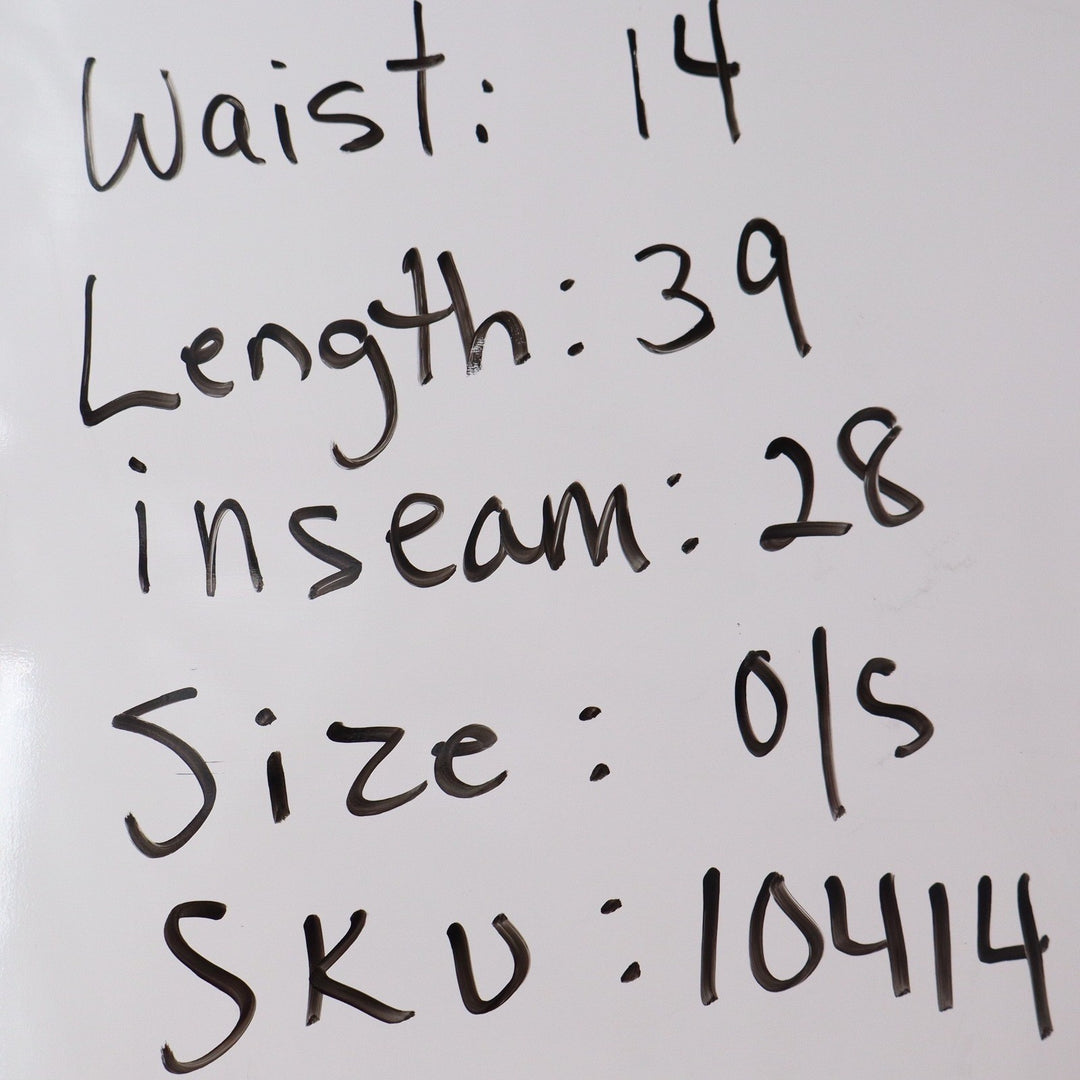 Waist: 14
Length: 39
inseam: 28
Size: O/S
SKU: 10414